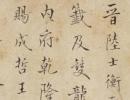 晉陸士衡
籤及雙龍
內府乾隆
賜成哲王